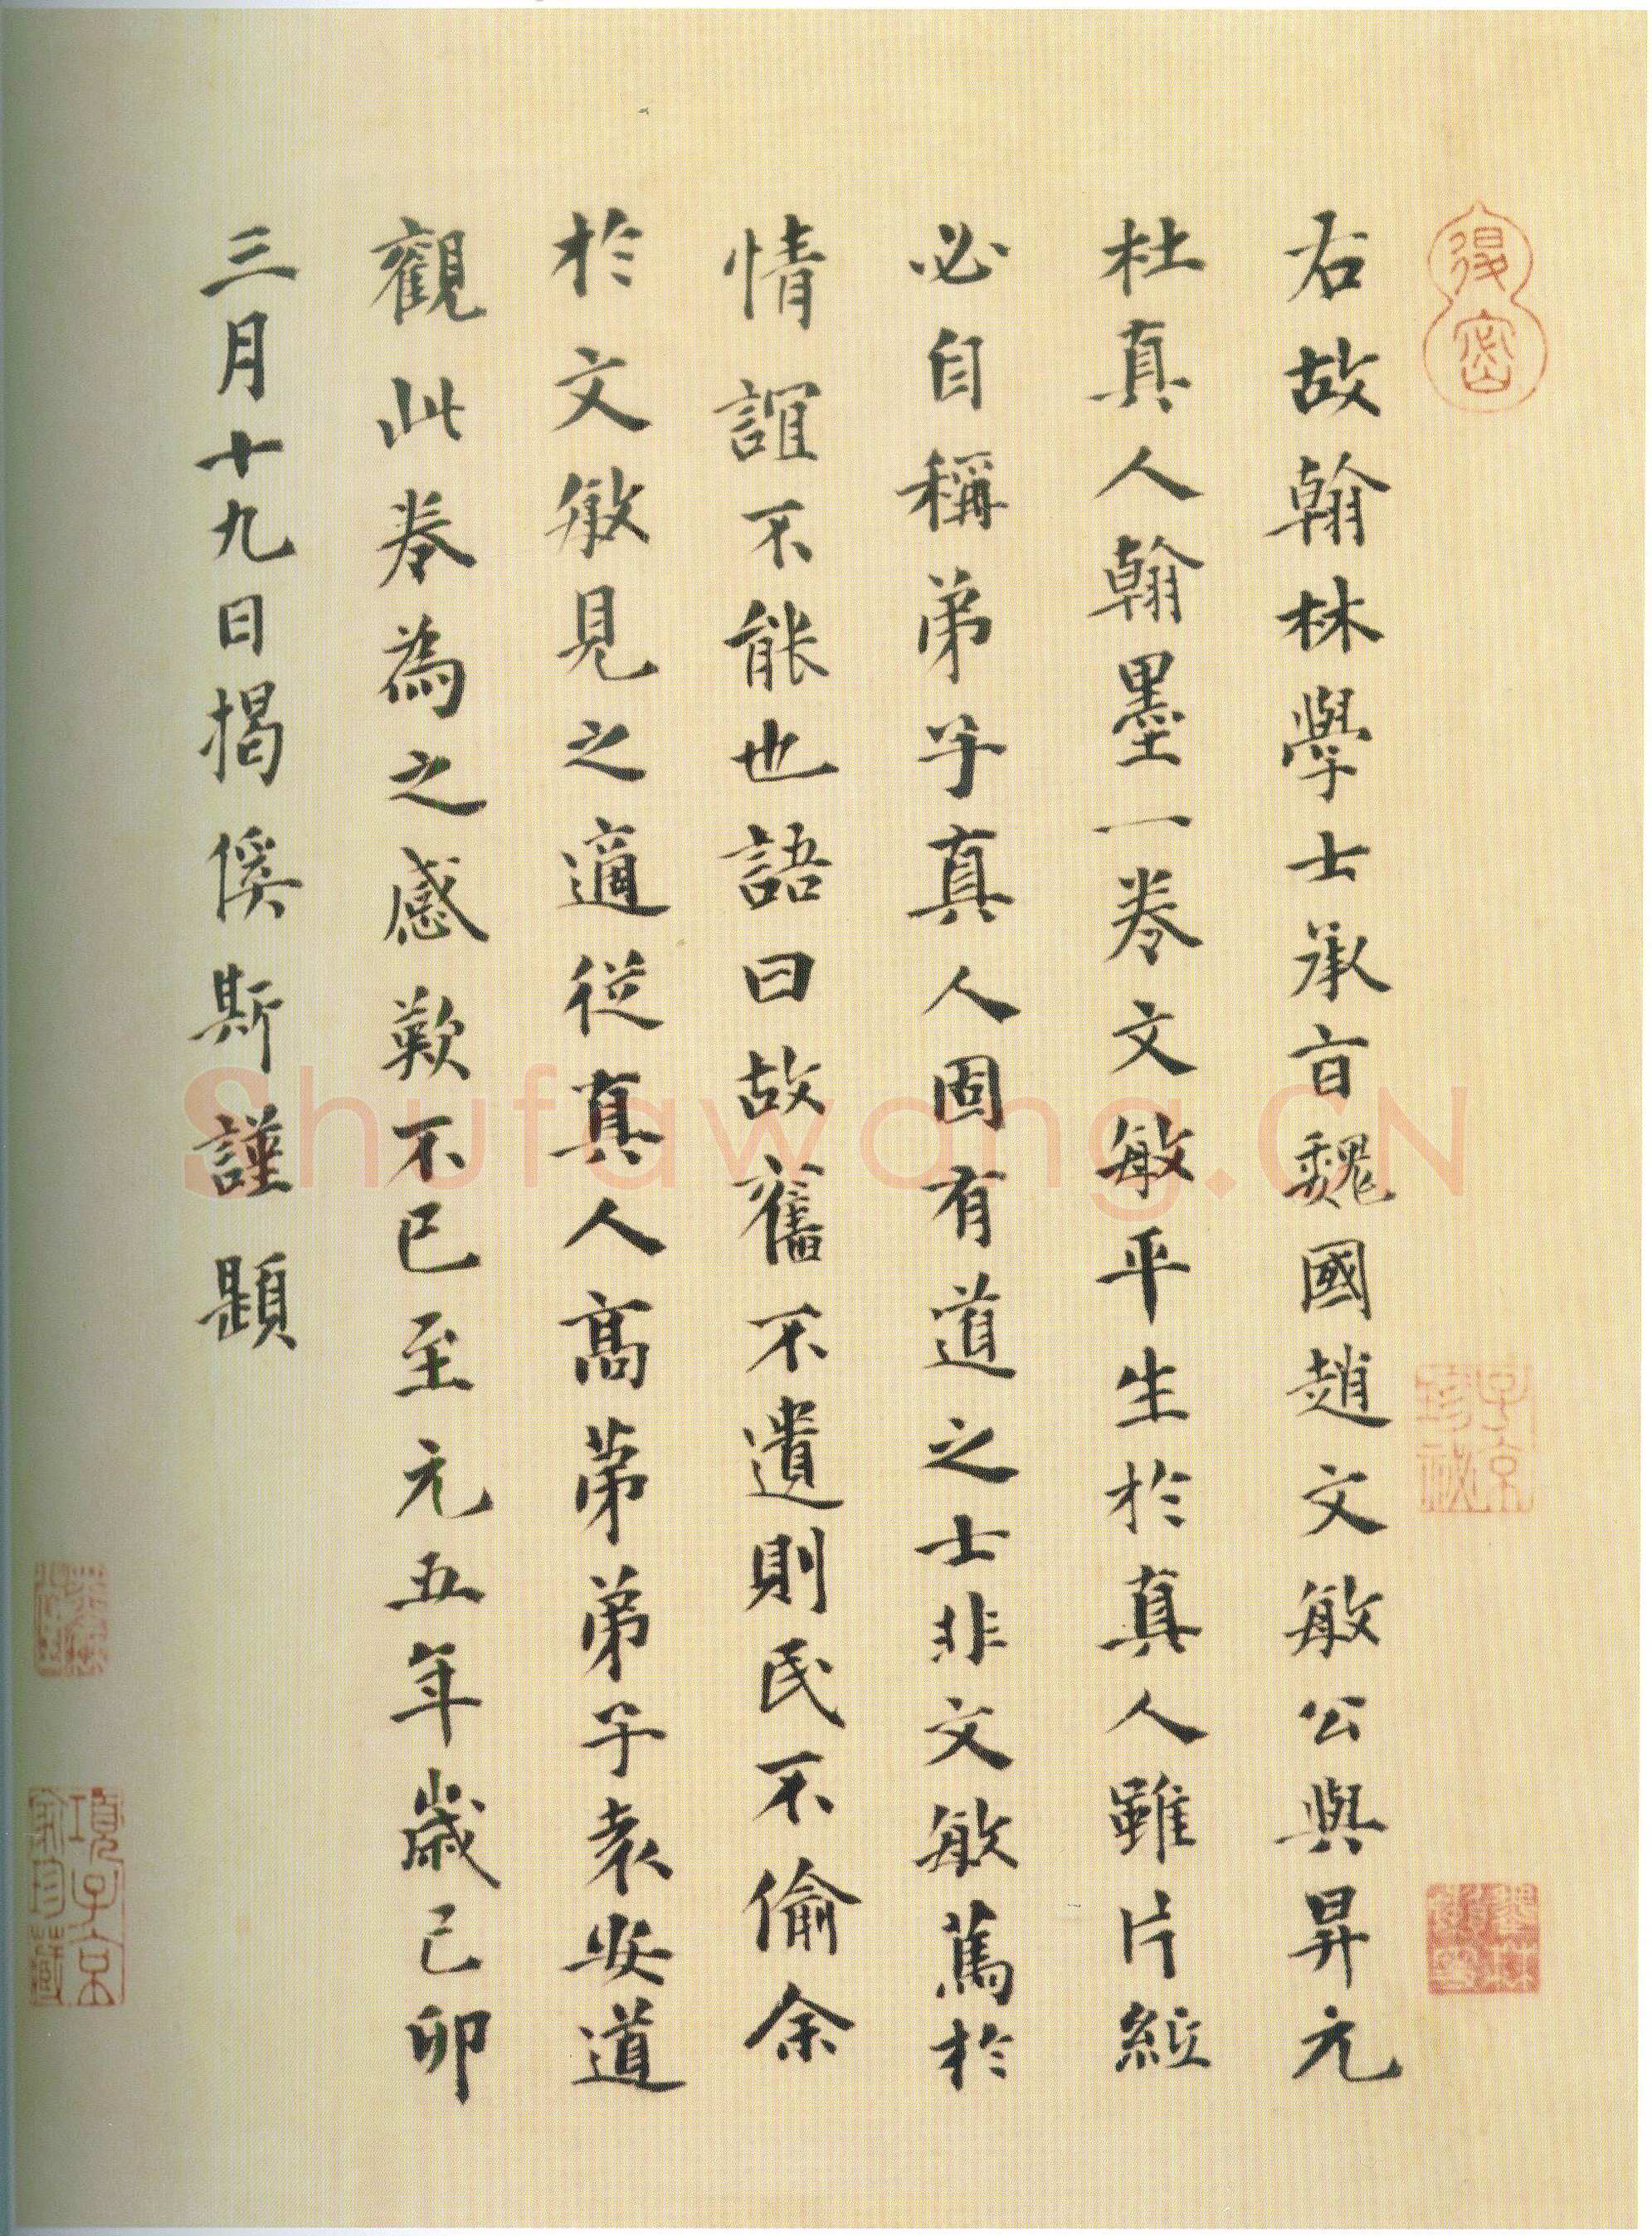 右故翰林學士承旨魏國趙文敏公與昇元
杜真人翰墨一卷文敏平生於真人雖片紙
必自稱弟子真人固有道之士非文敏篤於
情誼不能也語曰故舊不遺則民不偷余
於文敏見之適從真人高苐弟子袁安道
觀此卷為之感歎不已至元五年歲己卯
三月十九日揭傒斯謹題
子京
珍祕
項子京
家珍藏
Shufawang.CN